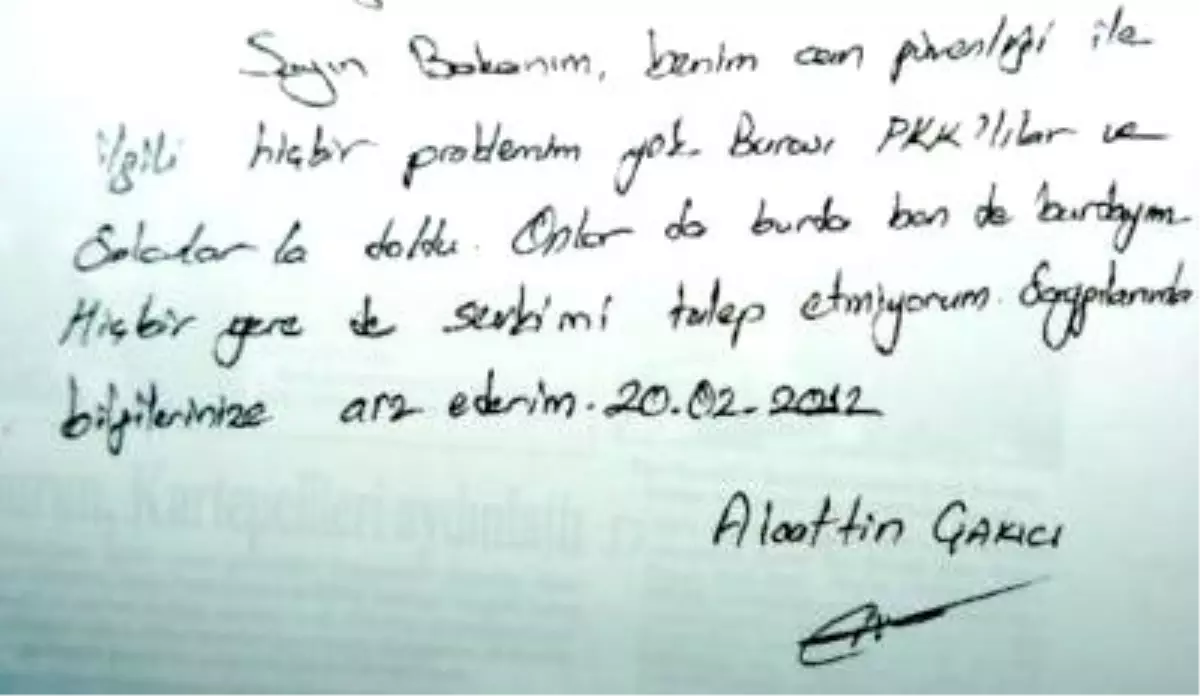 Sayın Bakanım, benim can güvenliği ile
ilgili hiçbir problemim yok. Burası PKK'lılar ve
Solcular la doldu. Onlar da burda ben de burdayım.
Hiçbir yere de sevkimi talep etmiyorum. Saygılarımla
bilgilerinize arz ederim. 20.02.2012
Alaattin ÇAKICI
Kartepelileri aydınlattı